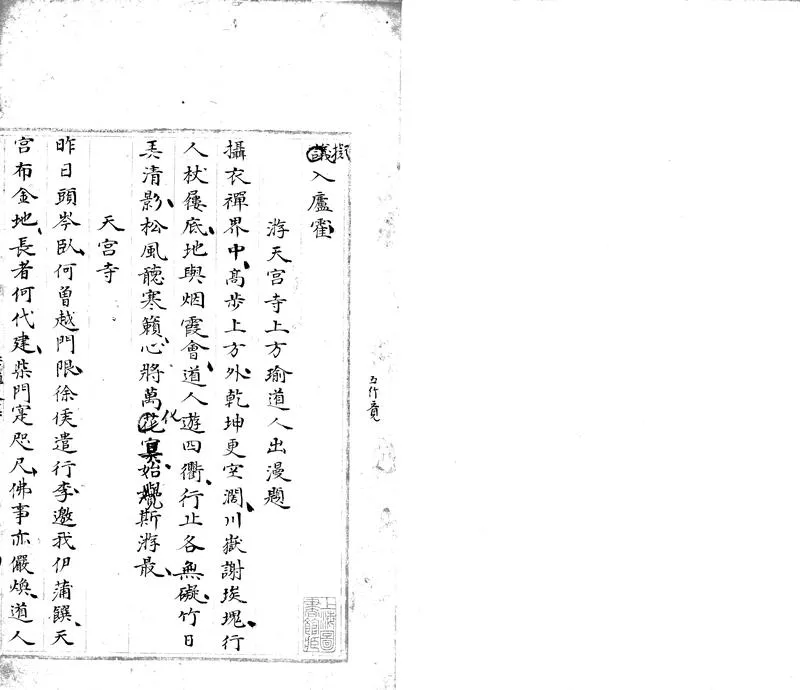 擬
議入廬霍
游天宫寺上方瑜道人出漫題
攝衣禪界中髙步上方外乾坤更空濶川嶽謝埃塊行
人杖屨底地與烟霞會道人遊四衢行止各無礙竹日
弄清影松風聽寒籟心將萬花化冥始覺斯游最
天宫寺
昨日頭岑臥何曽越門限徐侯遣行李邀我伊蒲饌天
宫布金地長者何代建柴門寔咫尺佛事亦嚴煥道人
上海圖
書館藏